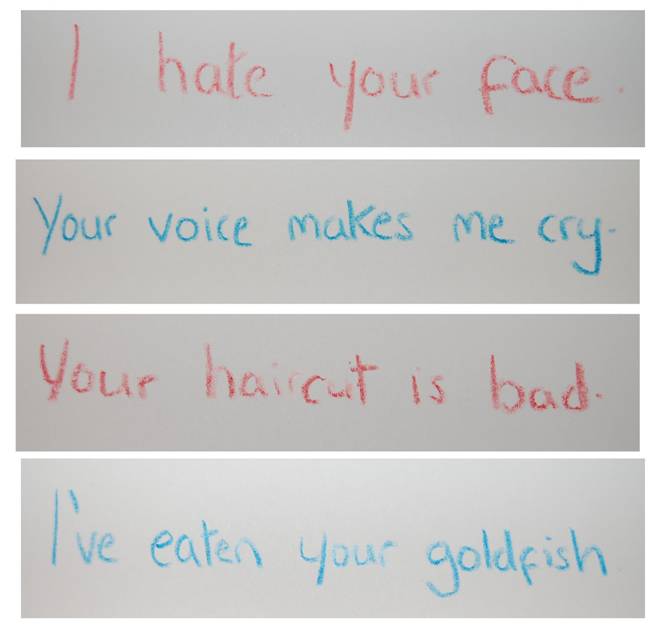 I hate your face.
Your voice makes me cry.
Your haircut is bad.
I've eaten your goldfish